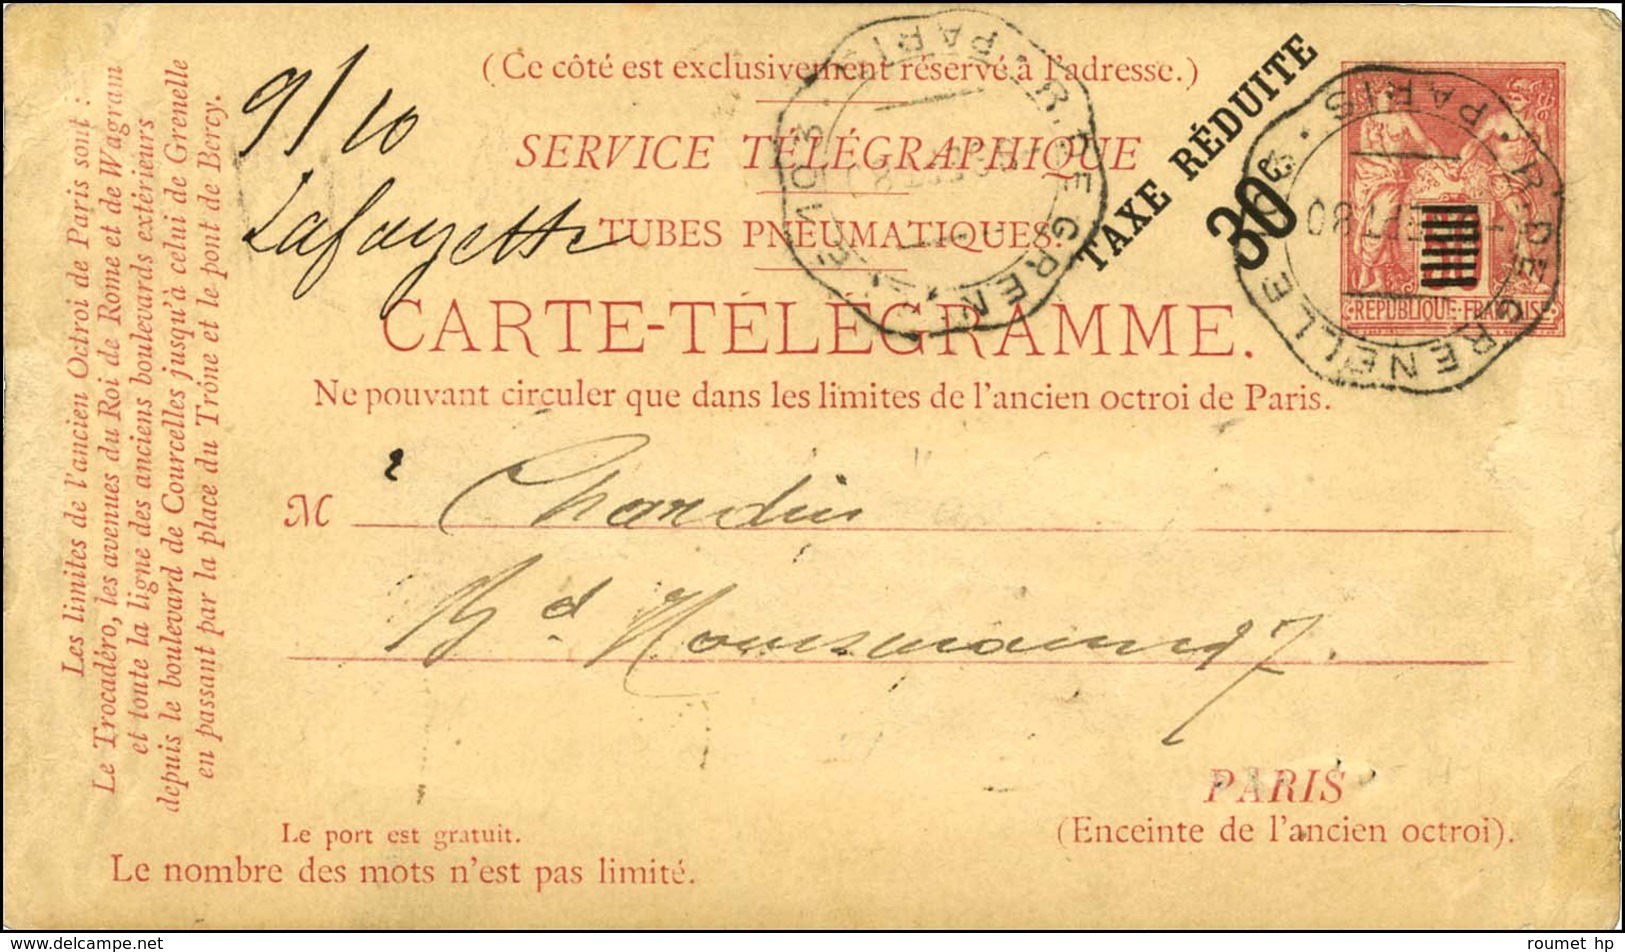 Les limites de l'ancien Octroi de Paris sont :
Le Trocadéro, les avenues du Roi de Rome et de Wagram
et toute la ligne des anciens boulevards extérieurs
depuis le boulevard de Courcelles jusqu'à celui de Grenelle
en passant par la place du Trône et le pont de Bercy.
9/10
Lafayette
(Ce côté est exclusivement réservé à l'adresse.)
SERVICE TÉLÉGRAPHIQUE
TUBES PNEUMATIQUES.
CARTE-TÉLÉGRAMME.
Ne pouvant circuler que dans les limites de l'ancien octroi de Paris.
TAXE RÉDUITE
30c
PARIS · R. DE GRENELLE 103 ·
PARIS · R. DE GRENELLE
SEPT 80
RÉPUBLIQUE FRANÇAISE
M r Chardin
Bd Houssmann 97.
PARIS
(Enceinte de l'ancien octroi).
Le port est gratuit.
Le nombre des mots n'est pas limité.
www.delcampe.net
roumet hp